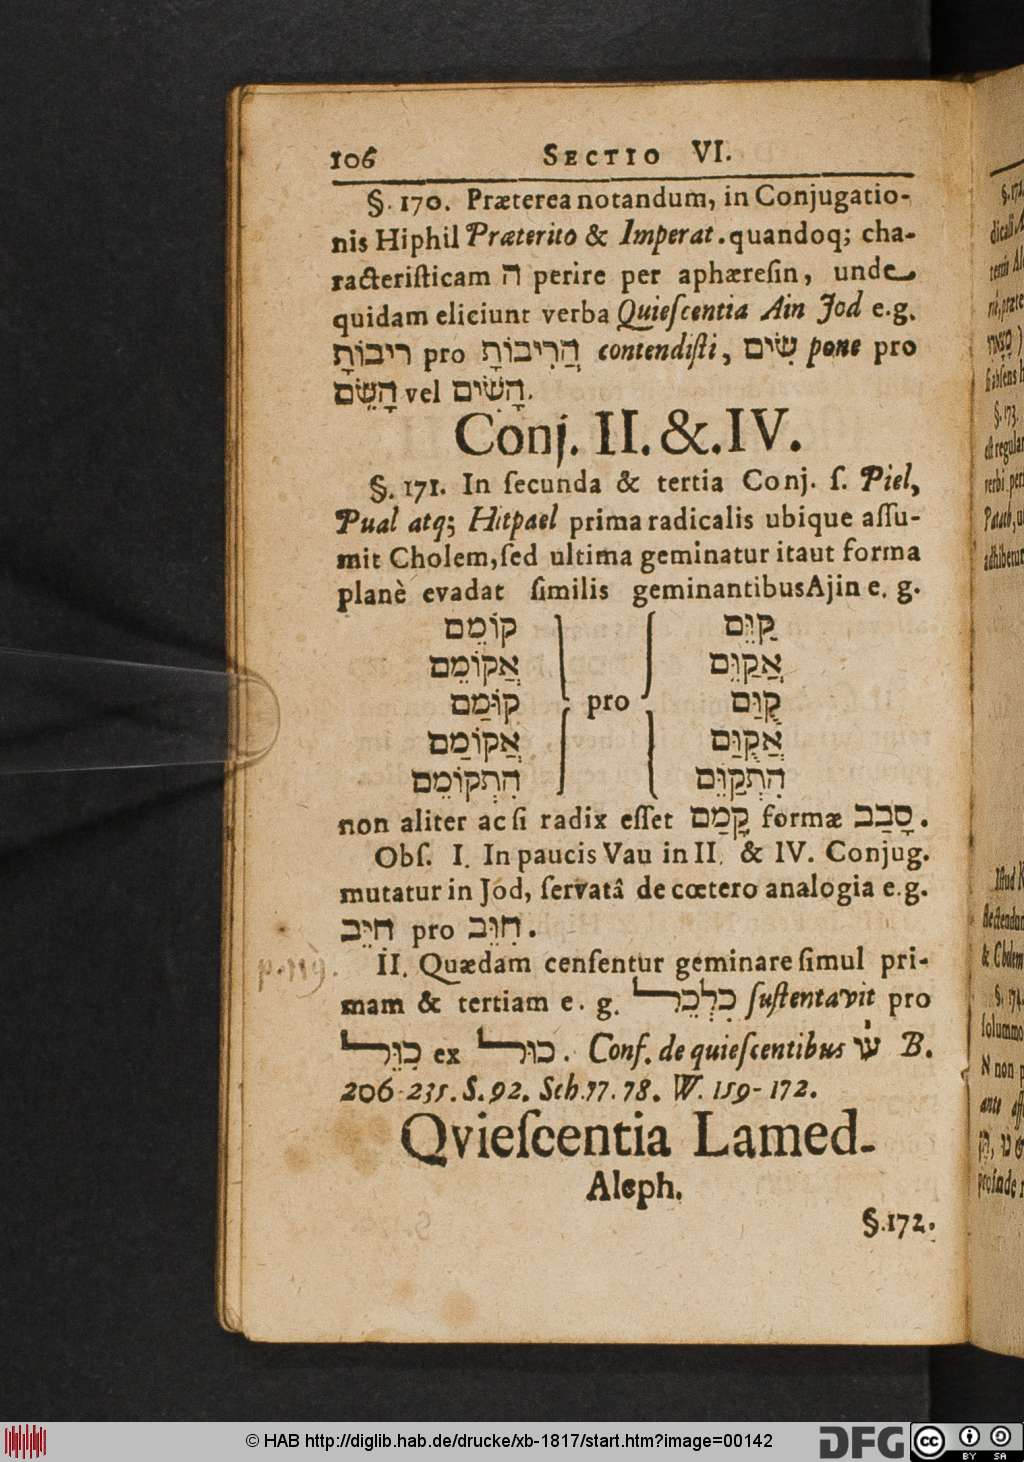 106 SECTIO VI.
§. 170. Præterea notandum, in Conjugatio-
nis Hiphil Præterito & Imperat. quandoq; cha-
racteriſticam ה perire per aphæreſin, unde
quidam eliciunt verba Quieſcentia Ain Jod e.g.
רִיבוֹתָ pro הֲרִיבוֹתָ contendiſti, שִׂים pone pro
הָשֵׂם vel הָשִׂים.
Conj. II. &. IV.
§. 171. In ſecunda & tertia Conj. ſ. Piel,
Pual atq; Hitpael prima radicalis ubique aſſu-
mit Cholem, ſed ultima geminatur itaut forma
planè evadat ſimilis geminantibus Ajin e. g.
קוֹמֵם קַוֵּם
אֲקוֹמֵם אֲקַוֵּם
קוֹמַם pro קֻוַּם
אֲקוֹמַם אֲקֻוַּם
הִתְקוֹמֵם הִתְקַוֵּם
non aliter ac ſi radix eſſet קָמַם formæ סָבַב.
Obſ. I. In paucis Vau in II. & IV. Conjug.
mutatur in Jod, ſervatâ de cœtero analogia e.g.
חִיֵּב pro חִוֵּב.
II. Quædam cenſentur geminare ſimul pri-
mam & tertiam e. g. כִּלְכֵּל ſuſtentavit pro
כִּוֵּל ex כוּל. Conf. de quieſcentibus עו B.
206-235. S. 92. Sch. 77. 78. W. 159-172.
Qvieſcentia Lamed-
Aleph.
§. 172.
p. 119.
© HAB http://diglib.hab.de/drucke/xb-1817/start.htm?image=00142
DFG
cc BY SA